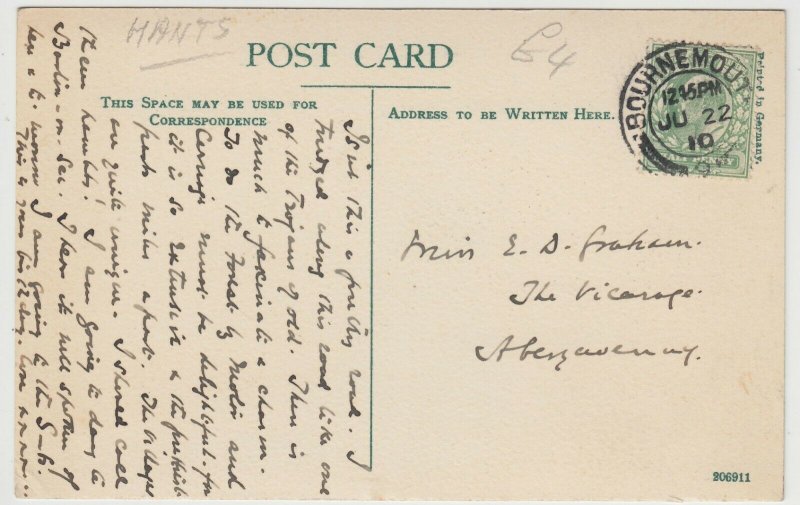 HANTS
£4
POST CARD
THIS SPACE MAY BE USED FOR
CORRESPONDENCE
ADDRESS TO BE WRITTEN HERE.
Printed in Germany.
BOURNEMOUT
12.45PM
JU 22
10
Miss E. D. Graham.
The Vicarage.
Abergavenny.
Is not this a pretty road. I
trudged along this road like one
of the Trojans of old. There is
much to fascinate a chosen.
To do the Forest by Motor and
Carriage must be delightful. for
it is so extensive & the prettiest
parts miles apart. The Villages
are quite unique. I should call
them hamlets! I am going to day to
Barton-on-Sea. I hear it well spoken of
here & to morrow I am going to the
This is your birthday.
206911